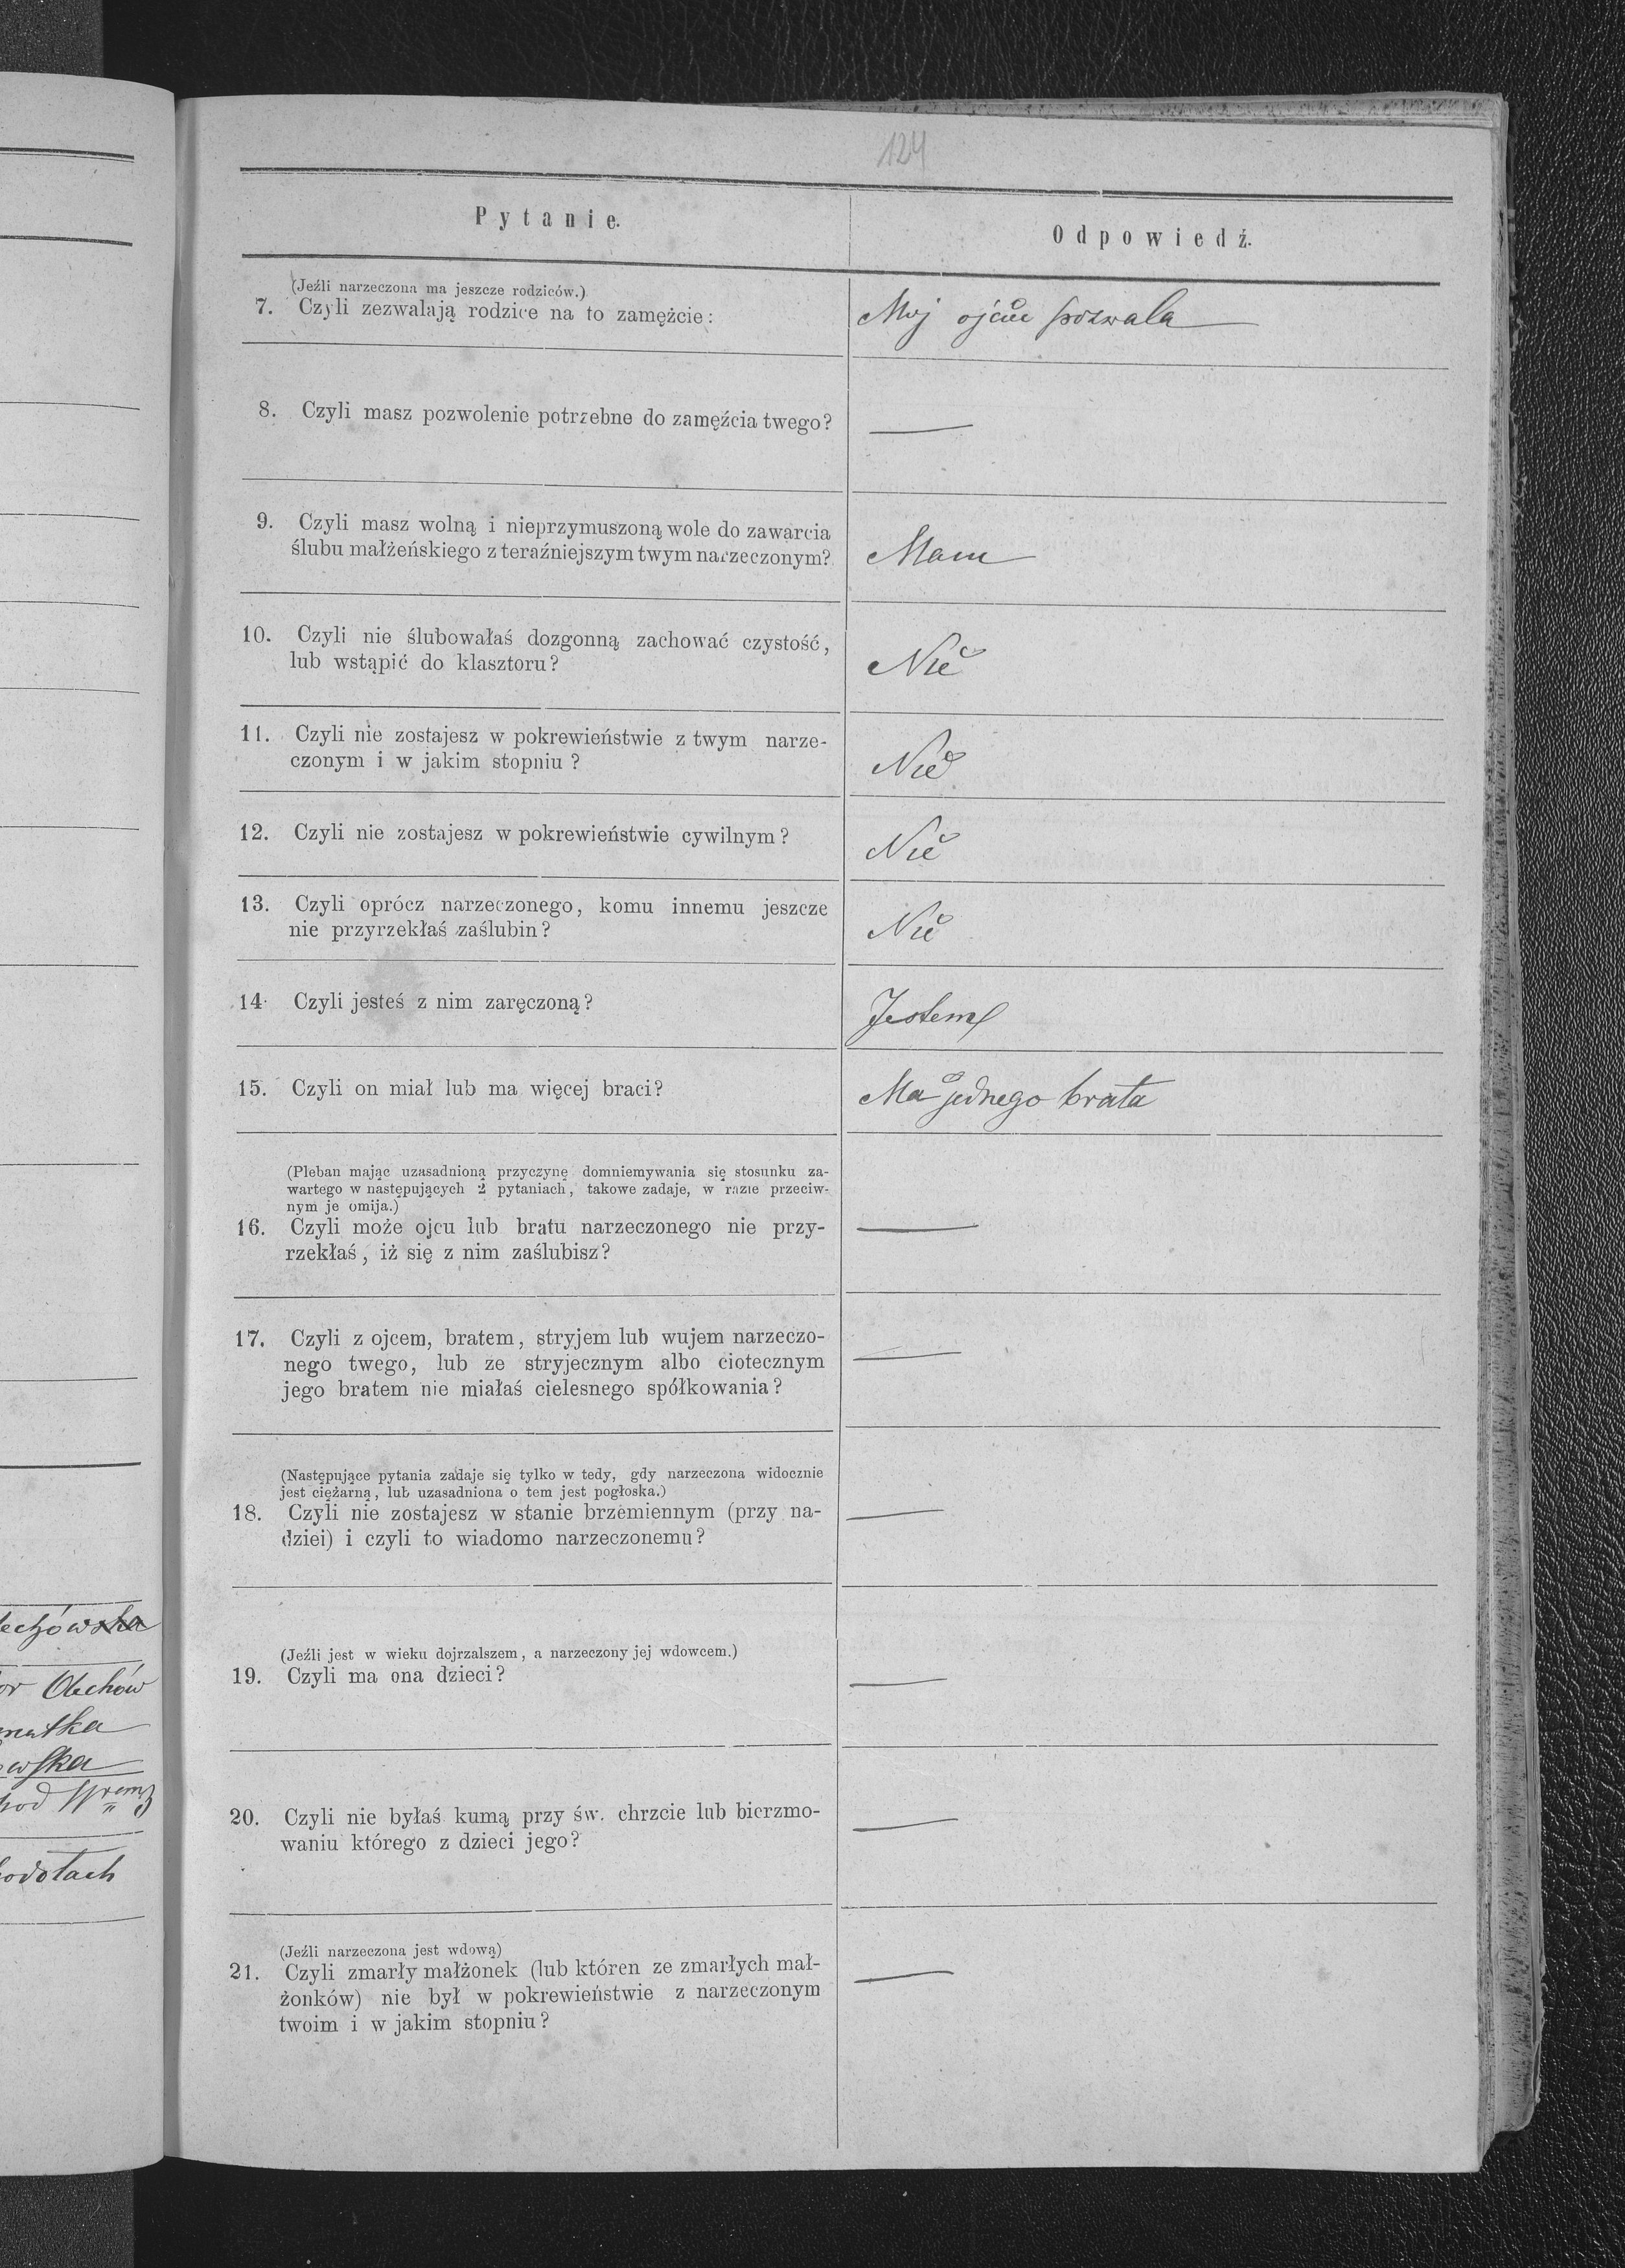 124
Pytanie.
Odpowiedź.
(Jeźli narzeczona ma jeszcze rodziców.)
7. Czyli zezwalają rodzice na to zamężcie:
Moj ojciec pozwala
8. Czyli masz pozwolenie potrzebne do zamęźcia twego?
—
9. Czyli masz wolną i nieprzymuszoną wole do zawarcia
ślubu małżeńskiego z teraźniejszym twym narzeczonym?
Mam
10. Czyli nie ślubowałaś dozgonną zachować czystość,
lub wstąpić do klasztoru?
Nie
11. Czyli nie zostajesz w pokrewieństwie z twym narze-
czonym i w jakim stopniu?
Nie
12. Czyli nie zostajesz w pokrewieństwie cywilnym?
Nie
13. Czyli oprócz narzeczonego, komu innemu jeszcze
nie przyrzekłaś zaślubin?
Nie
14. Czyli jesteś z nim zaręczoną?
Jestem
15. Czyli on miał lub ma więcej braci?
Ma jednego brata
(Pleban mając uzasadnioną przyczynę domniemywania się stosunku za-
wartego w następujących 2 pytaniach, takowe zadaje, w razie przeciw-
nym je omija.)
16. Czyli może ojcu lub bratu narzeczonego nie przy-
rzekłaś, iż się z nim zaślubisz?
—
17. Czyli z ojcem, bratem, stryjem lub wujem narzeczo-
nego twego, lub ze stryjecznym albo ciotecznym
jego bratem nie miałaś cielesnego spółkowania?
—
(Następujące pytania zadaje się tylko w tedy, gdy narzeczona widocznie
jest ciężarną, lub uzasadniona o tem jest pogłoska.)
18. Czyli nie zostajesz w stanie brzemiennym (przy na-
dziei) i czyli to wiadomo narzeczonemu?
—
(Jeźli jest w wieku dojrzalszem, a narzeczony jej wdowcem.)
19. Czyli ma ona dzieci?
—
20. Czyli nie byłaś kumą przy św. chrzcie lub bierzmo-
waniu którego z dzieci jego?
—
(Jeźli narzeczona jest wdową)
21. Czyli zmarły małżonek (lub któren ze zmarłych mał-
żonków) nie był w pokrewieństwie z narzeczonym
twoim i w jakim stopniu?
—
Olechów
matka